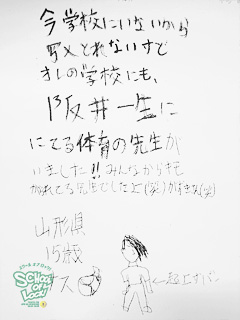 今学校にいないから
写メとれないすケド
オレの学校にも、
阪井一生に
にてる体育の先生が
いました!!みんなからキモ
がられてる先生でしたよ(笑)
山形県
15歳
オス
←超上すパン
SCHOOL
OF
LOCK!